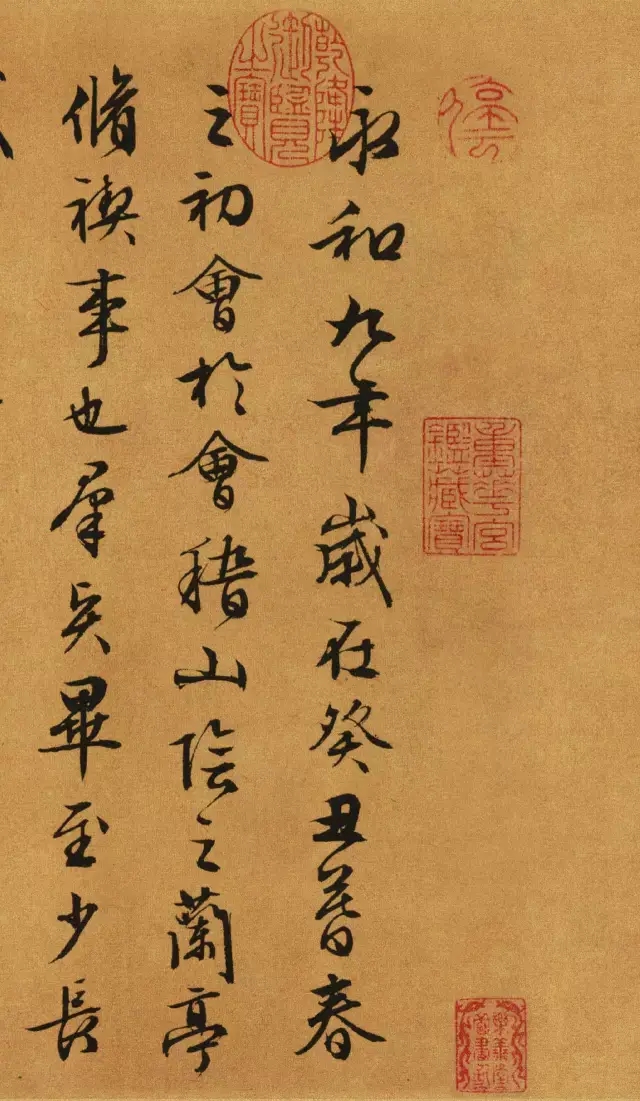 停雲
重華宮鑑藏寶
樂善堂圖書記
永和九年歲在癸丑暮春
乾隆御覽之寶
之初會於會稽山陰之蘭亭
脩禊事也羣賢畢至少長